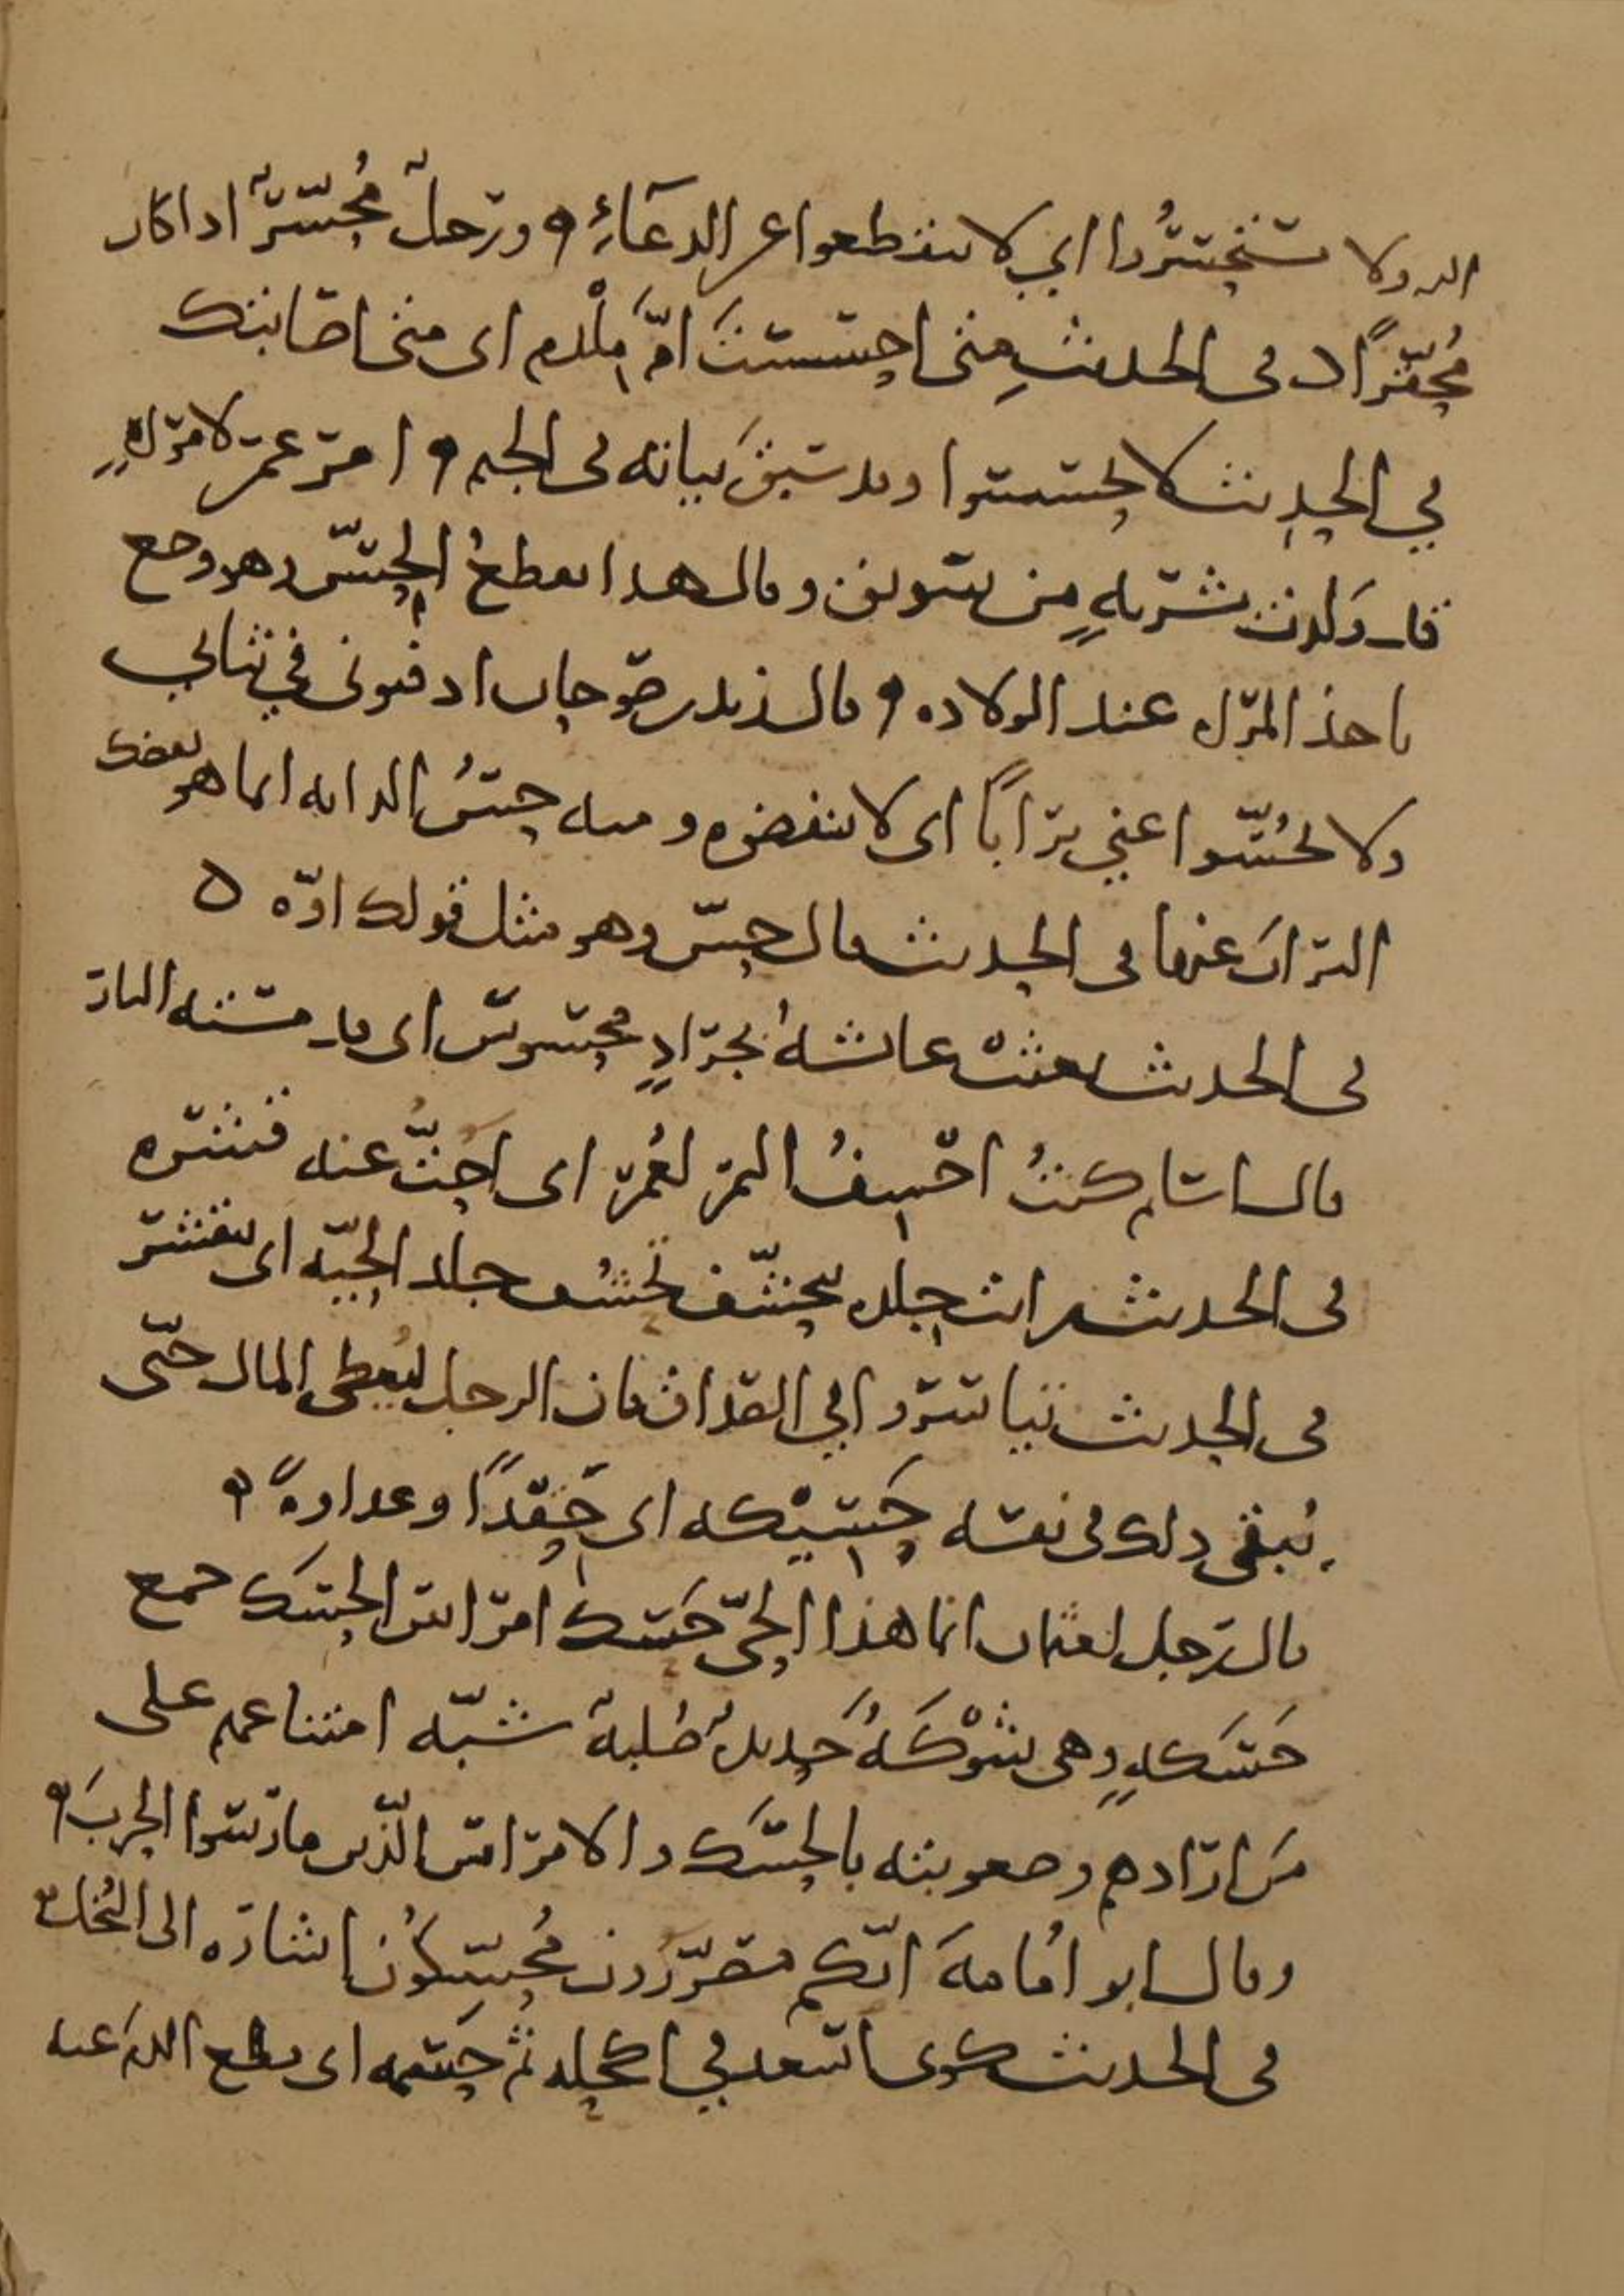 الله ولا تستحسروا اي لا تنقطعوا عن الدعاء ورجل محسر اذا كان
محقرا في الحديث متى احسست ام ملدم اى متى اصابتك
في الحديث لا تحسسوا وقد سبق بيانه في الجيم امر عمر لامراة
قد ولدت بشربة من سويق وقال هذا يقطع الحس وهو وجع
ياخذ المراة عند الولادة وقال زيد بن صوحان ادفنوني في ثيابي
ولا تحسوا عني ترابا اى لا تنفضوه ومنه حس الدابة انما هو نفضك
التراب عنها في الحديث قال حس وهو مثل قولك اوه
في الحديث بعثت عائشة بجراد محسوس اى قد مسته النار
قال اسلم كنت احسف التمر لعمر اى احت عنه قشره
في الحديث رايت جلده يتحسف تحسف جلد الحية اى يتقشر
في الحديث تياسروا في الصداق فان الرجل ليعطي المال حتى
يبقى ذلك في نفسه حسيكة اى حقدا وعداوة
قال رجل لعثمان انما هذا الحي حسك امراس الحسك جمع
حسكة وهي شوكة حديدة صلبة شبه امتناعهم على
من ارادهم وصعوبته بالحسك والامراس الذين مارسوا الحرب
وقال ابو امامة انكم مصررون محسكون اشارة الى البخل
في الحديث كوى سعدا في اكحله ثم حسمه اى قطع الدم عنه